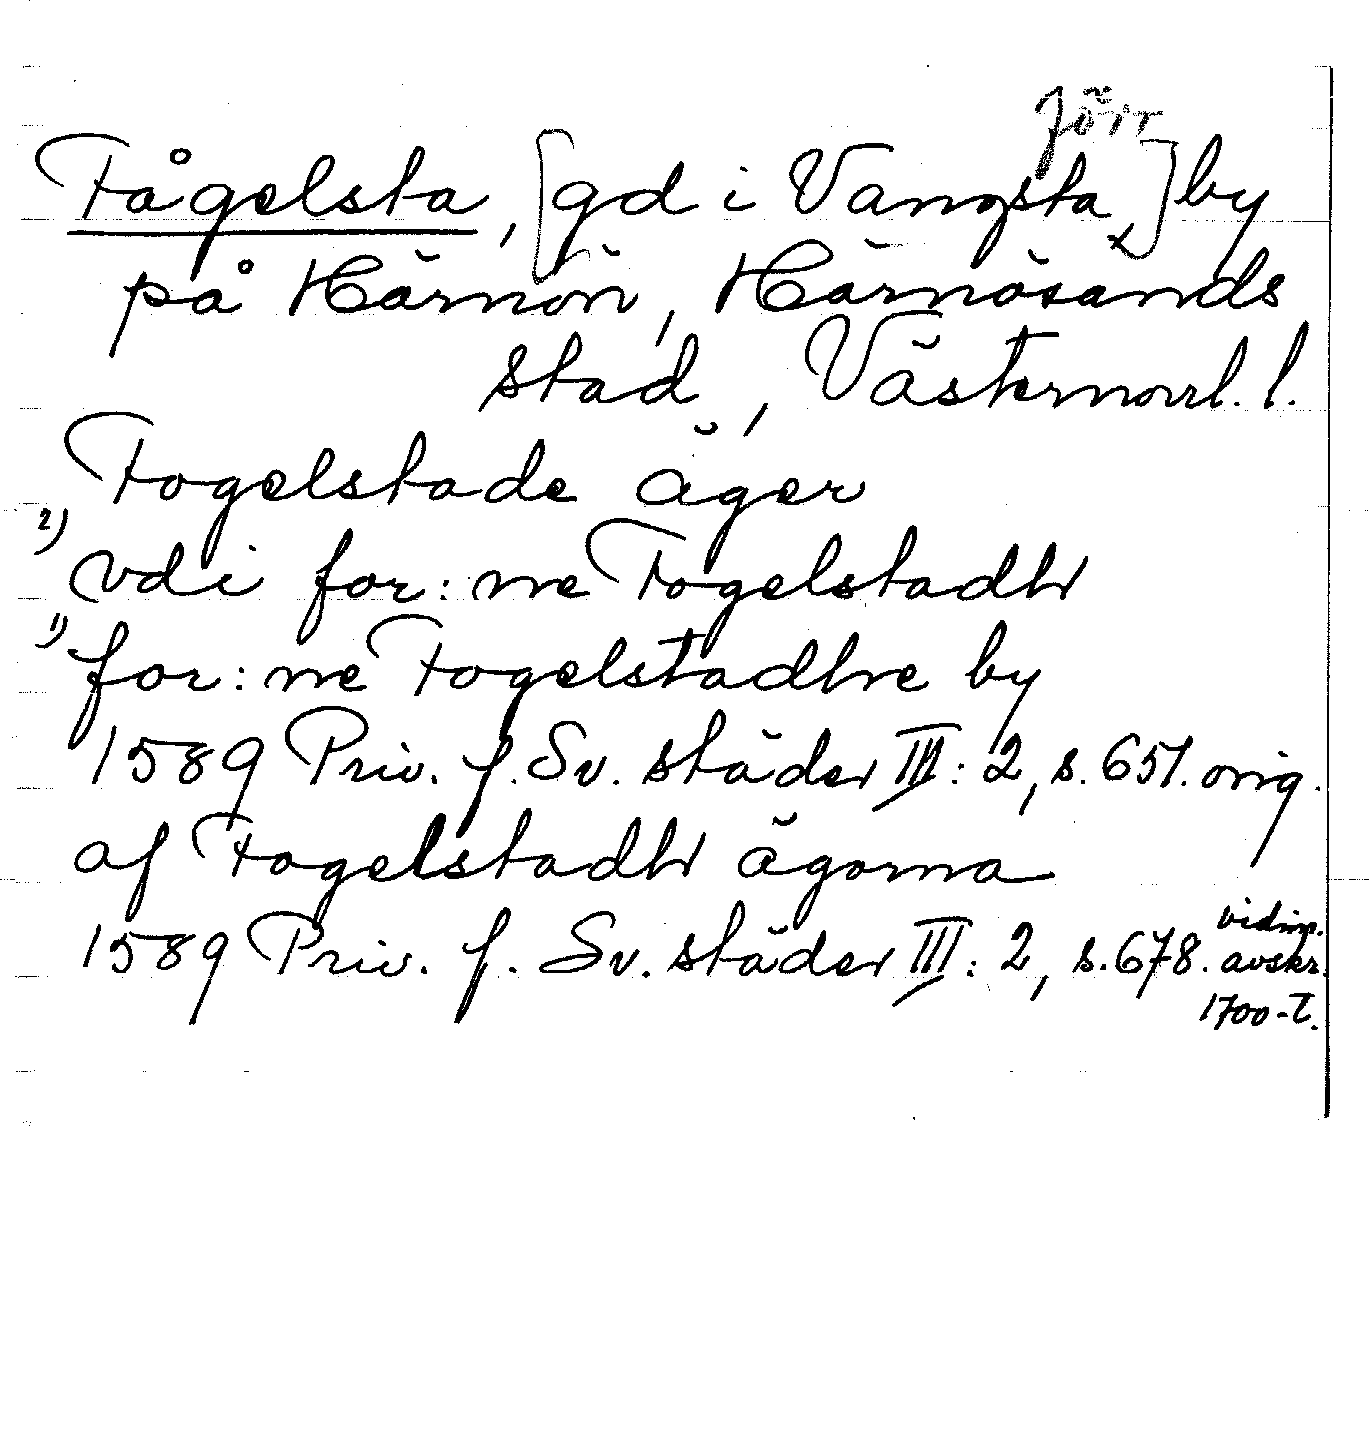 Förr
Fågelsta, [gd i Vangsta,] by
på Härnön, Härnösands
stad, Västernorrl. l.
Fogelstade äger
2) vdi for:ne Fogelstadhr
1) for:ne Fogelstadhre by
1589 Priv. f. Sv. städer III:2, s. 651. orig.
af Fogelstadhr ägorna
1589 Priv. f. Sv. städer III:2, s. 678. vidim. avskr.
1700-t.